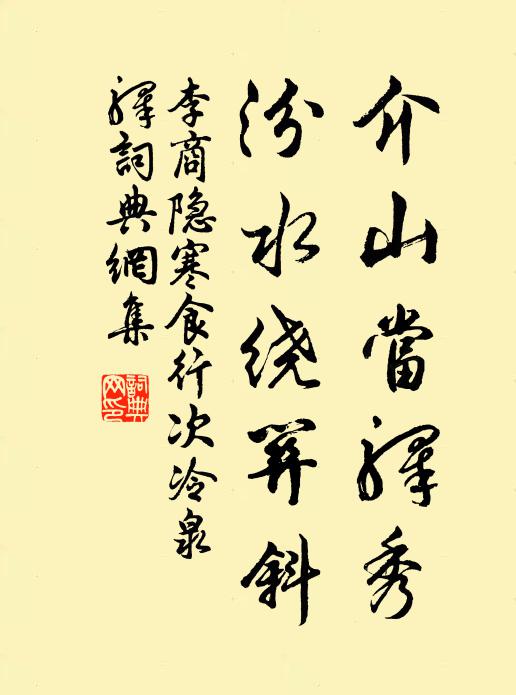 介山當驛秀
汾水绕關斜
李商隐寒食行次冷泉
驛詞典網集
詞典
网印